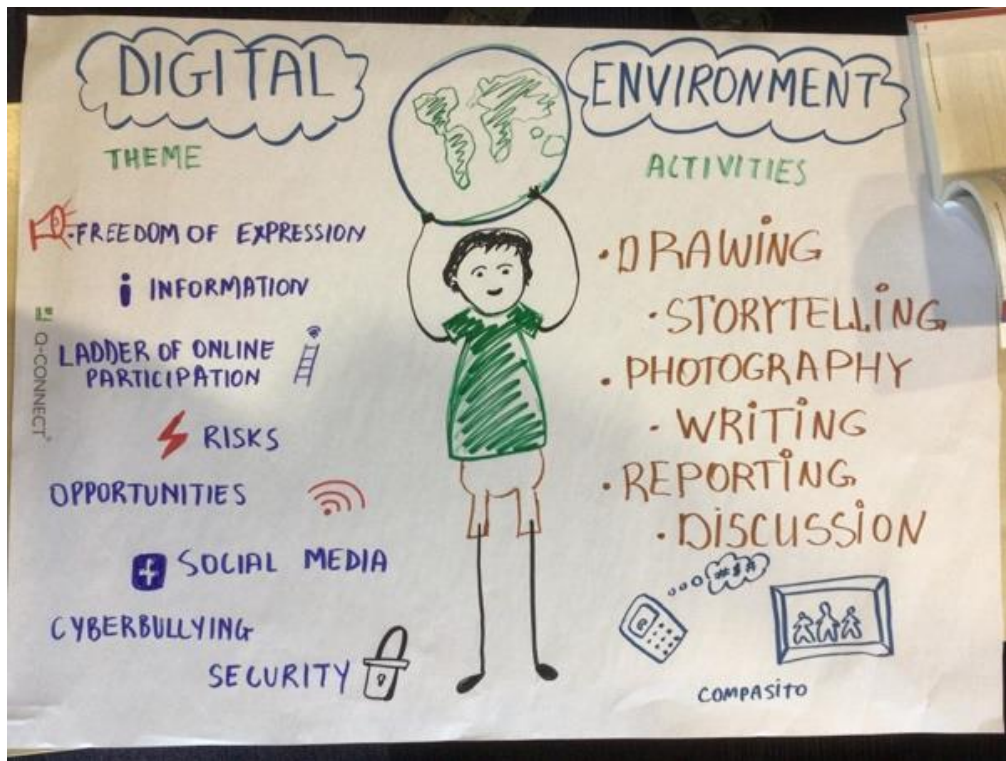 DIGITAL
ENVIRONMENT
THEME
FREEDOM OF EXPRESSION
i INFORMATION
LADDER OF ONLINE
PARTICIPATION
RISKS
OPPORTUNITIES
SOCIAL MEDIA
CYBERBULLYING
SECURITY
Q-CONNECT®
ACTIVITIES
•DRAWiNG
•STORYTELLiNG
•PHOTOGRAPHY
•WRiTiNG
•REPORTiNG
•DiSCUSSiON
#$A
COMPASiTO